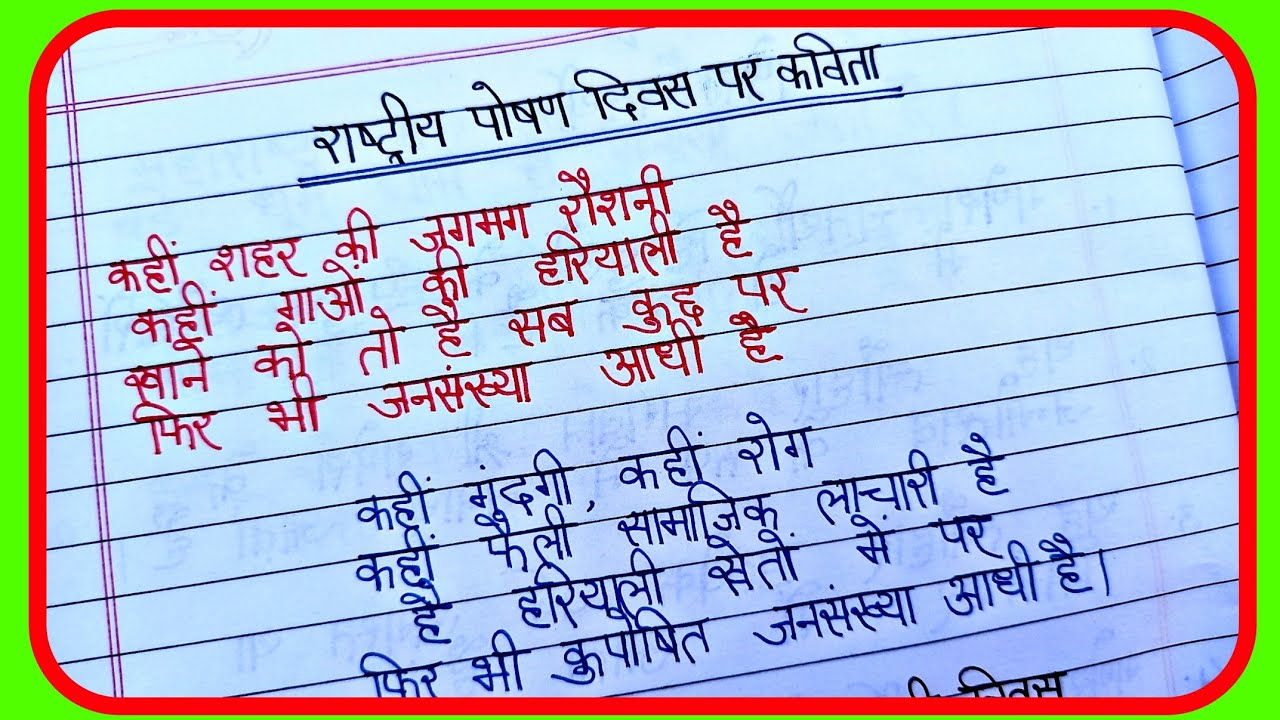 राष्ट्रीय पोषण दिवस पर कविता
कहीं शहर की जगमग रौशनी
कहीं गाओं की हरियाली है
खाने को तो है सब कुछ पर
फिर भी जनसंख्या आधी है
कहीं गंदगी, कहीं रोग
कहीं फैली सामाजिक लाचारी है
है हरियाली खेतों में पर
फिर भी कुपोषित जनसंख्या आधी है।
दिवस